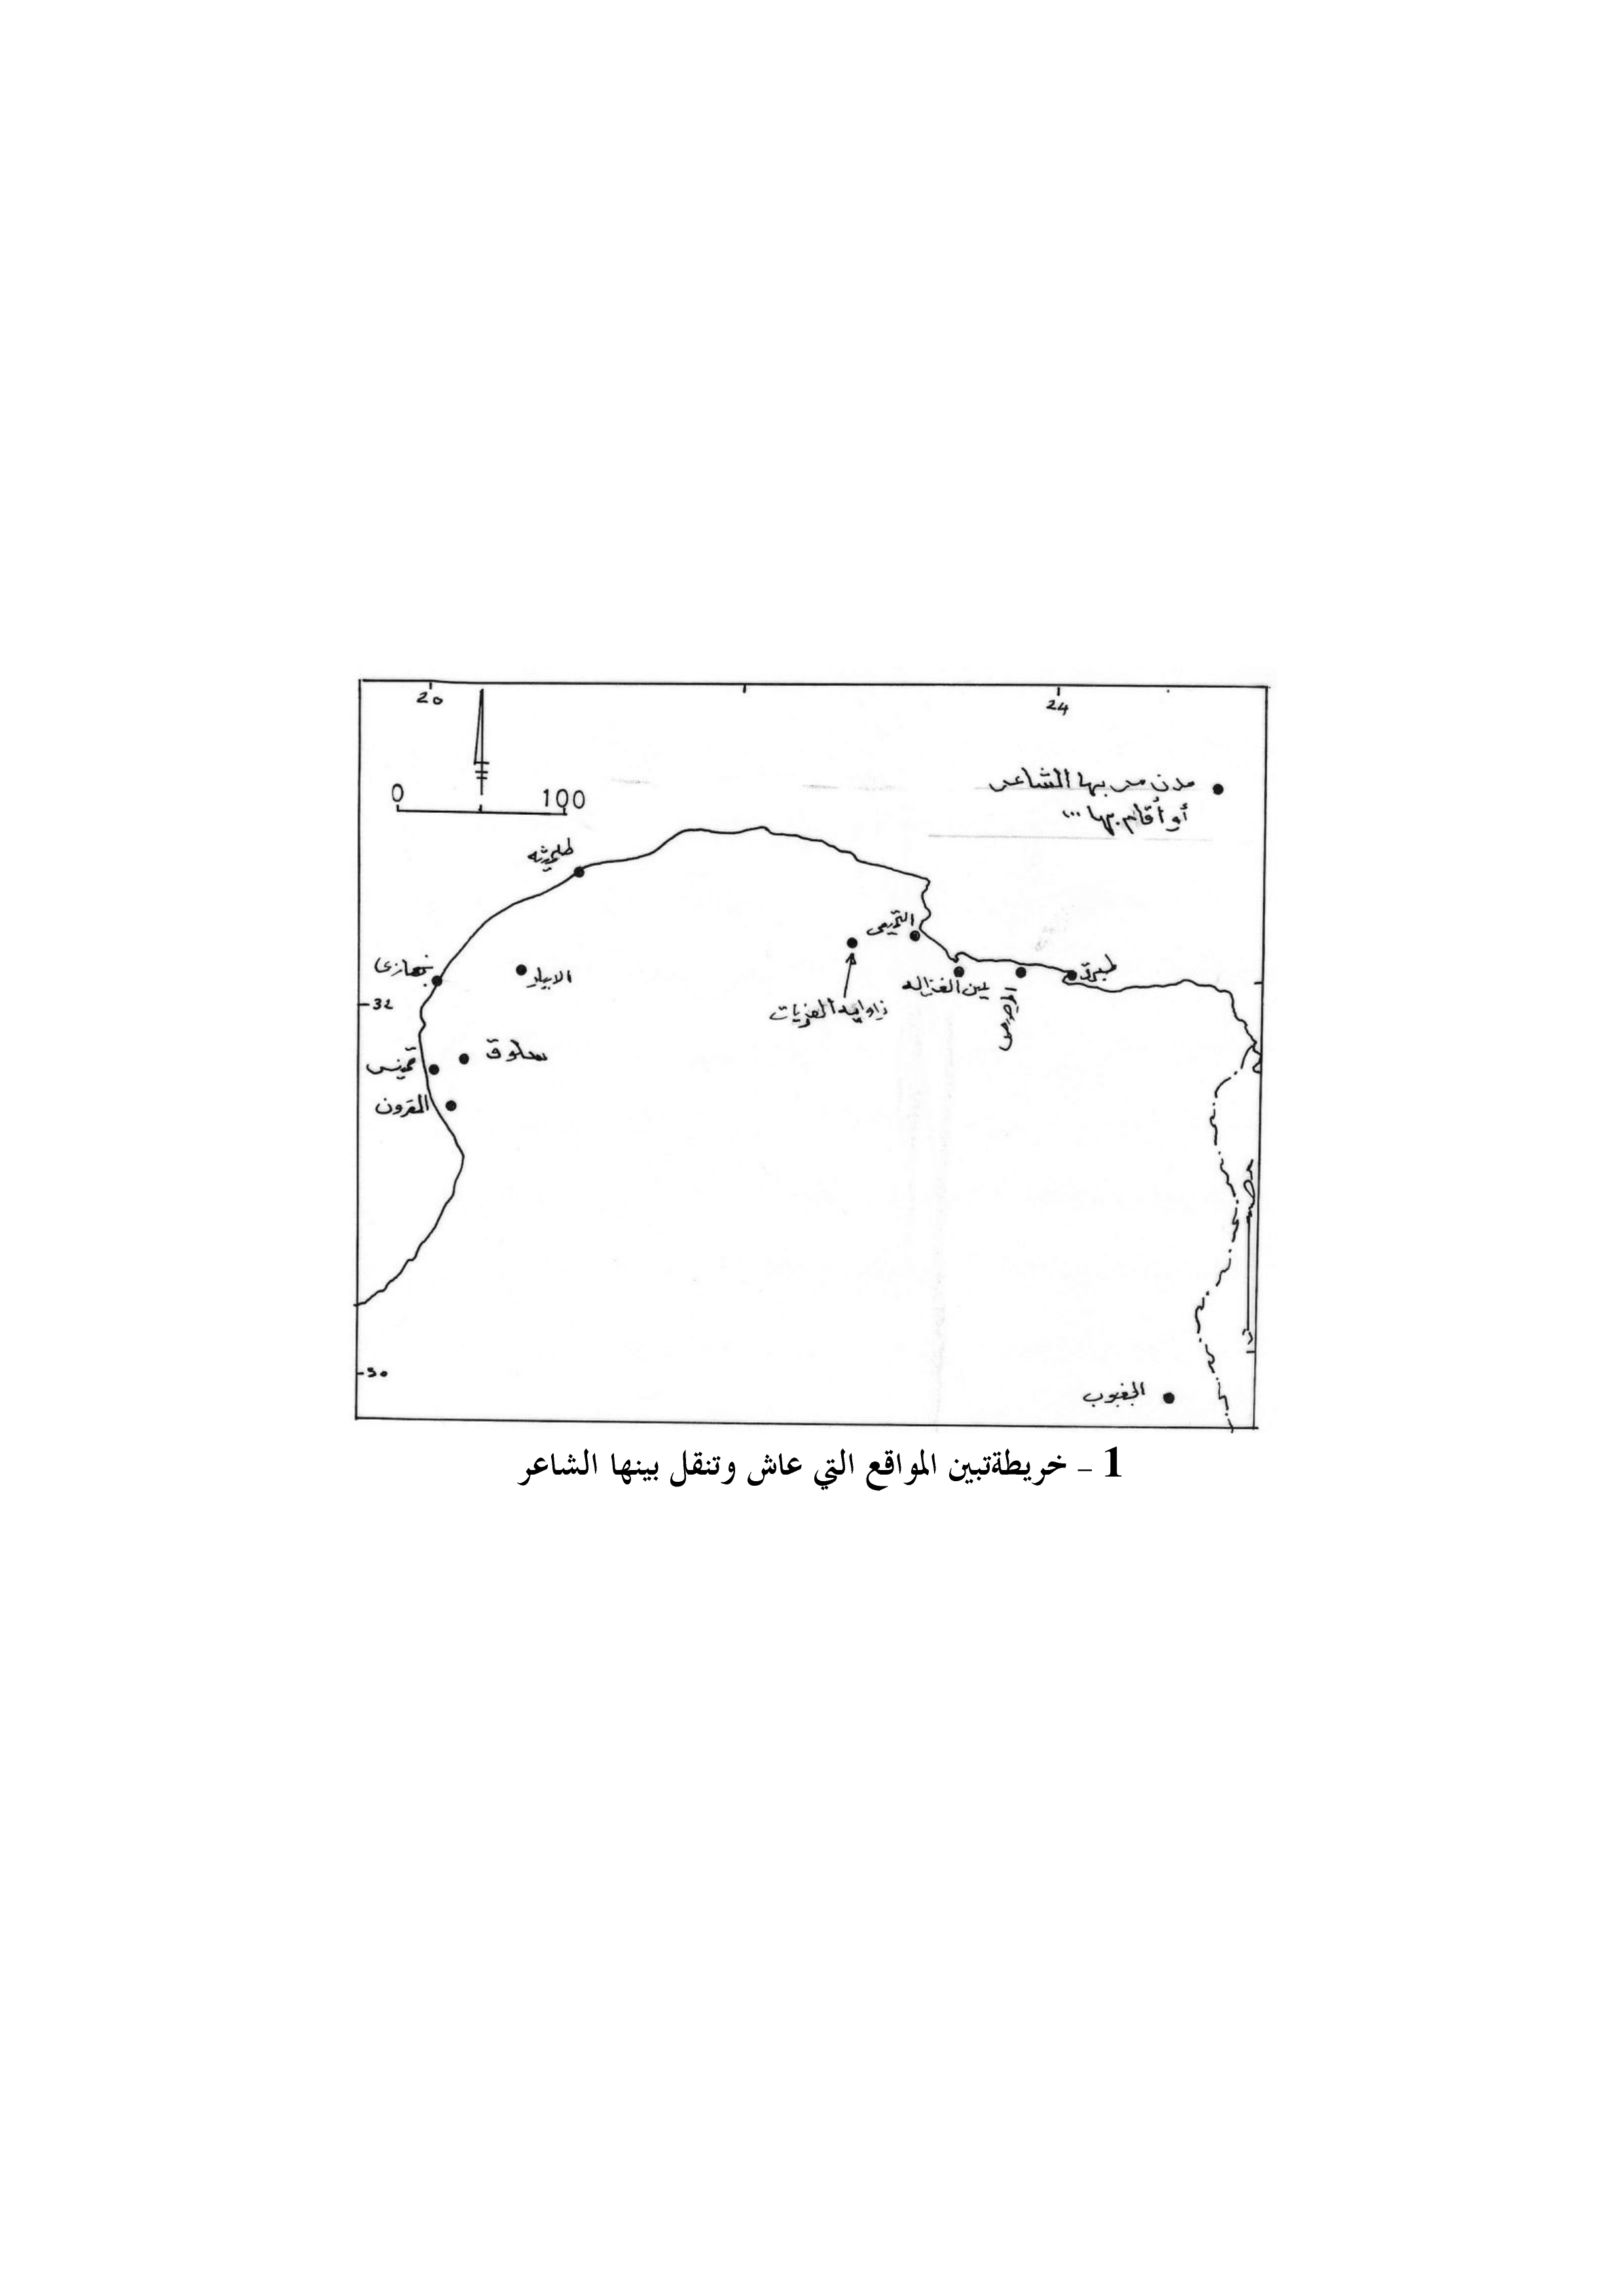 20
24
0
100
مدن مر بها الشاعر
أو أقام بها ...
طلميثه
التميمى
بنغازى
الابيار
طبرق
عين الغزاله
زاوية العزيات
32
سلوق
قمينس
المقرون
مصر
30
الجغبوب
1 – خريطةتبين المواقع التي عاش وتنقل بينها الشاعر